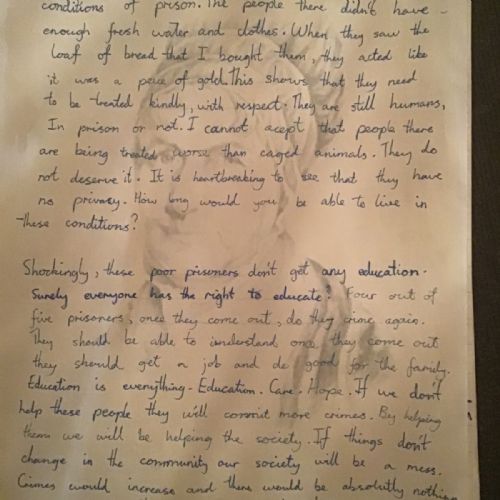 conditions of prison. The people there didn't have
enough fresh water and clothes. When they saw the
loaf of bread that I bought them, they acted like
it was a peice of gold. This shows that they need
to be treated kindly, with respect. They are still humans,
In prison or not. I cannot acept that people there
are being treated worse than caged animals. They do
not deserve it. It is heartbreaking to see that they have
no privasy. How long would you be able to live in
these conditions?
Shockingly, these poor prisoners don't get any education.
Surely everyone has the right to educate? Four out of
five prisoners, once they come out, do they crime again.
They should be able to understand once they come out
they should get a job and do good for the family.
Education is everything. Education. Care. Hope. If we don't
help these people they will commit more crimes. By helping
them we will be helping the society. If things don't
change in the community our society will be a mess.
Crimes would increase and there would be absolutly nothing